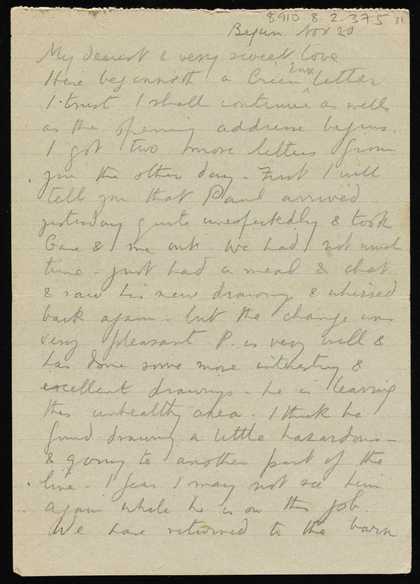 8910.8.2.375
Begun Nov 20
My dearest & very sweet love
Here beginneth a Green Env letter
I trust I shall continue as well
as the opening address begins.
I got two more letters from
you the other day. First I will
tell you that Paul arrived
yesterday quite unexpectedly & took
& me out. We had not much
time - just had a meal & chat
& saw his new drawings & whizzed
back again - but the change was
very pleasant P. is very well &
has done some more interesting &
excellent drawings - he is leaving
this unhealthy area. I think he
found drawing a little hazardous -
& going to another part of the
line. I fear I may not see him
again while he is on this job
We have returned to the barn